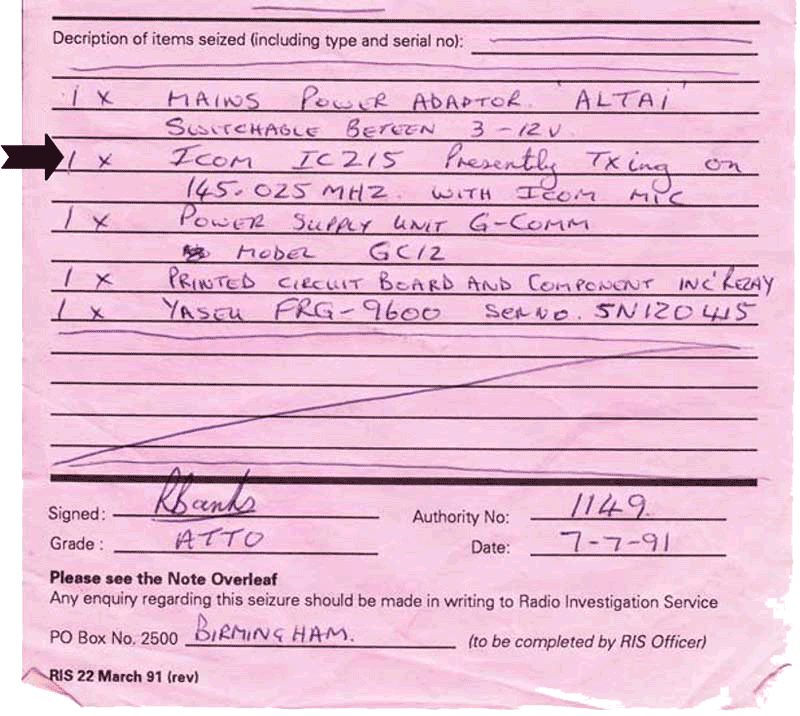 Decription of items seized (including type and serial no):
1 x MAINS POWER ADAPTOR. 'ALTAI'
SWITCHABLE BETEEN 3-12V.
1 x ICOM IC215 Presently TXing on
145.025 MHZ. WITH ICOM MIC
1 x POWER SUPPLY UNIT G-COMM
MODEL GC12
1 x PRINTED CIRCUIT BOARD AND COMPONENT INC' RELAY
1 x YASEU FRG-9600 SER NO. 5N120415
Signed: RBanks Authority No: 1149.
Grade: ATTO Date: 7-7-91
Please see the Note Overleaf
Any enquiry regarding this seizure should be made in writing to Radio Investigation Service
PO Box No. 2500 BIRMINGHAM. (to be completed by RIS Officer)
RIS 22 March 91 (rev)